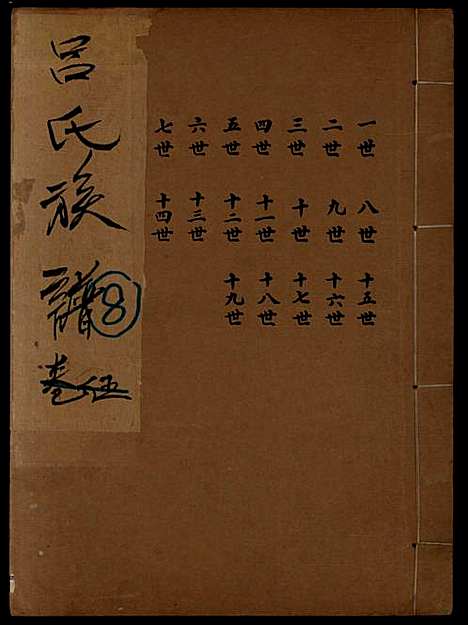 呂氏族譜
8
卷伍
一世 二世 三世 四世 五世 六世 七世
八世 九世 十世 十一世 十二世 十三世 十四世
十五世 十六世 十七世 十八世 十九世